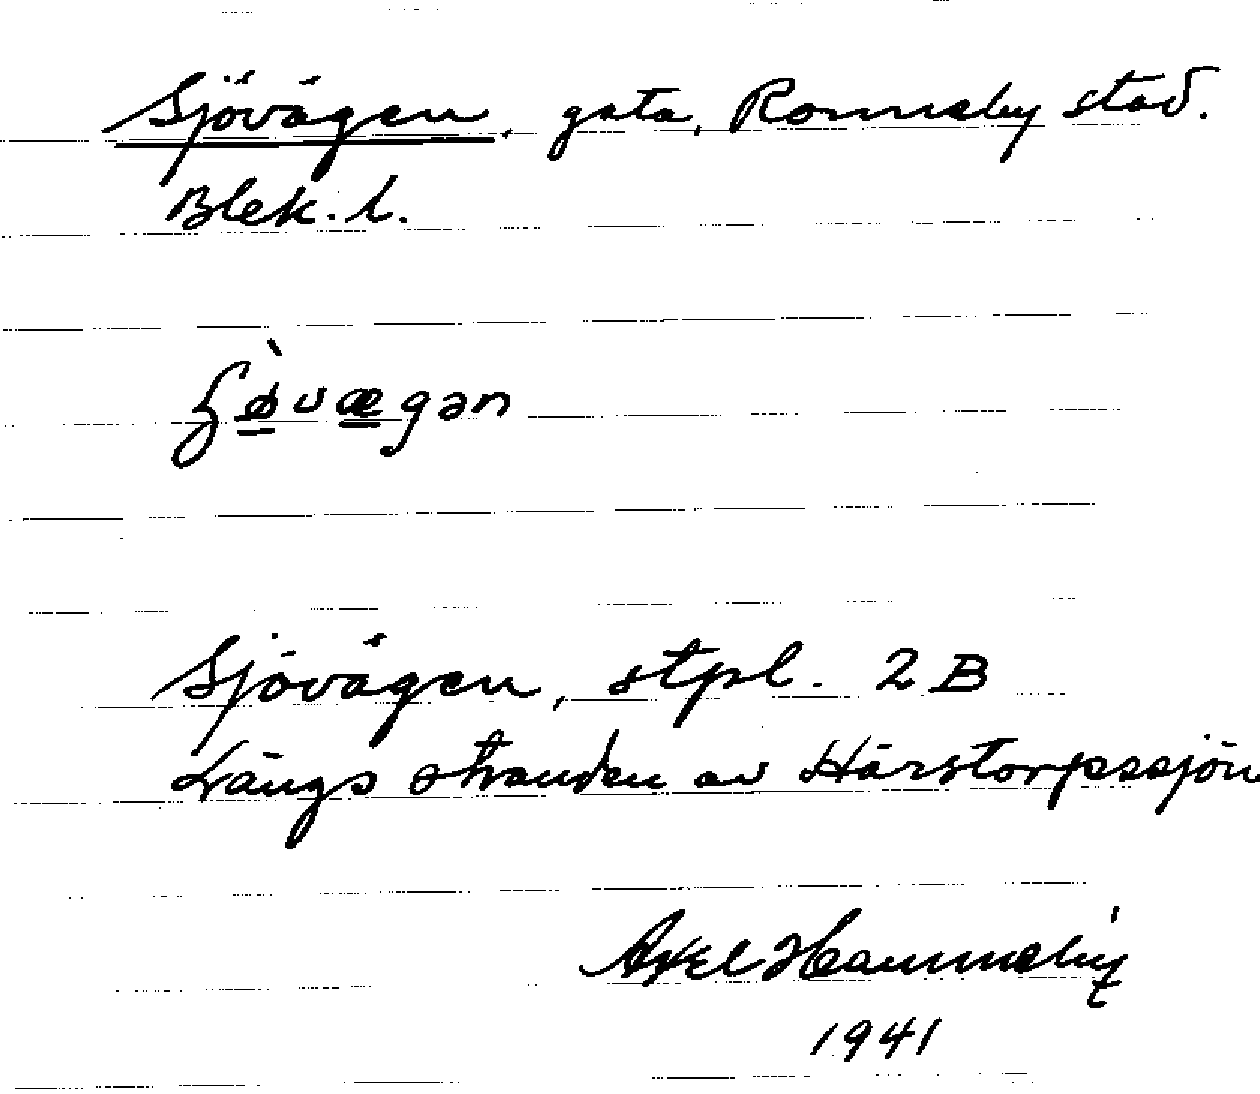 Sjövägen, gata, Ronneby stad.
Blek. l.
Sjövägen, stpl. 2 B
Längs stranden av Härstorpssjön
Axel Hammeby
1941